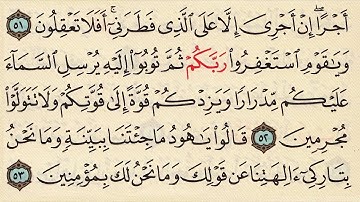 أَجْرًا ۖ إِنْ أَجْرِيَ إِلَّا عَلَى الَّذِي فَطَرَنِي ۚ أَفَلَا تَعْقِلُونَ ٥١
وَيَا قَوْمِ اسْتَغْفِرُوا رَبَّكُمْ ثُمَّ تُوبُوا إِلَيْهِ يُرْسِلِ السَّمَاءَ
عَلَيْكُم مِّدْرَارًا وَيَزِدْكُمْ قُوَّةً إِلَىٰ قُوَّتِكُمْ وَلَا تَتَوَلَّوْا
مُجْرِمِينَ ٥٢ قَالُوا يَا هُودُ مَا جِئْتَنَا بِبَيِّنَةٍ وَمَا نَحْنُ
بِتَارِكِي آلِهَتِنَا عَن قَوْلِكَ وَمَا نَحْنُ لَكَ بِمُؤْمِنِينَ ٥٣